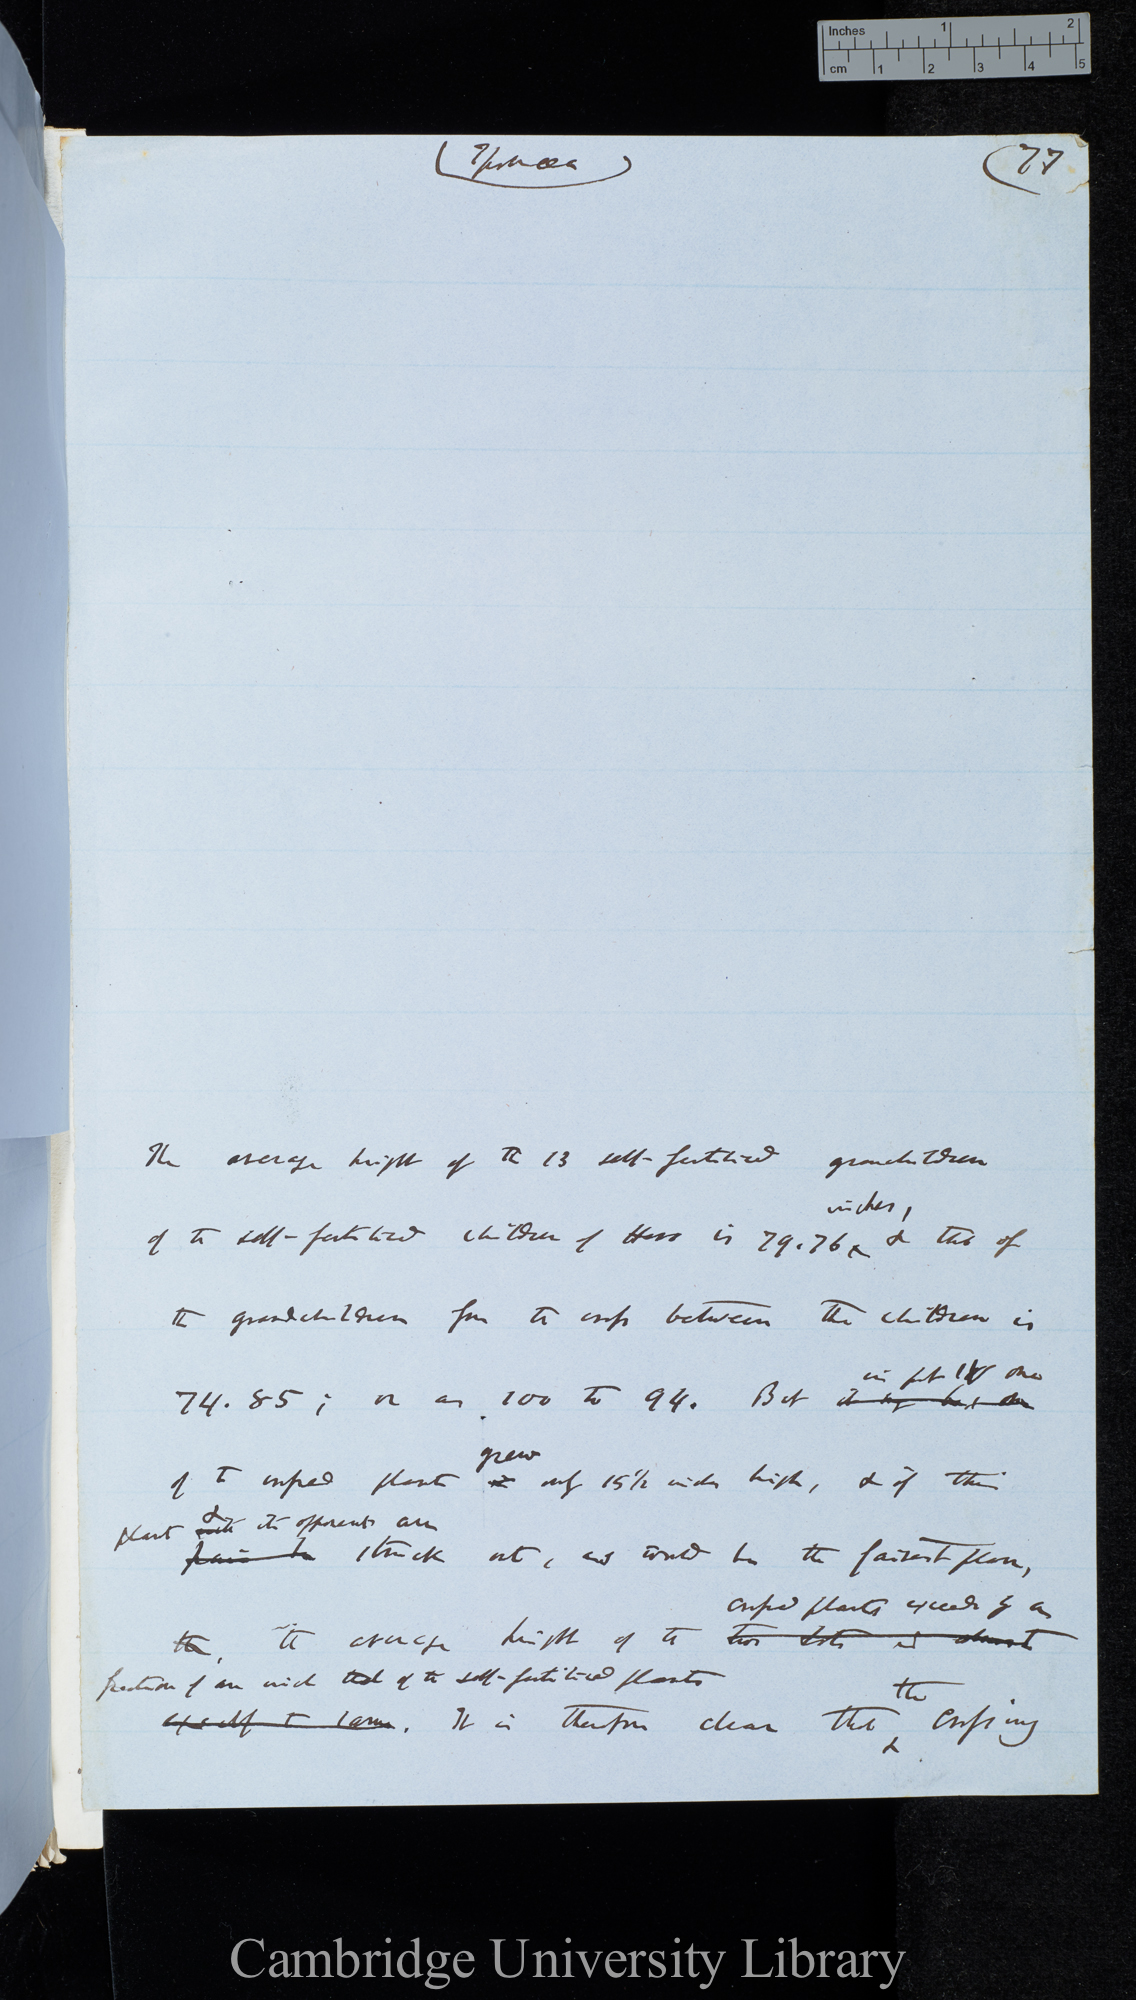 Inches 1 2
cm 1 2 3 4 5
(Ipomœa)
(77
The average height of the 13 self-fertilised grandchildren
inches,
of the self-fertilised children of Hero is 79.76 & that of
the grandchildren from the cross between the children is
in fact one
74.85; or as 100 to 94. But
grew
of the crossed plants is only 15 1/2 inches high, & if this
plant & its opponents are
pair be struck out, as would be the fairest plan,
crossed plants exceeds by a
the, the average height of the two lots is almost
fraction of an inch that of the self-fertilised plants
the
exactly the same. It is therefore clear that crossing
Cambridge University Library